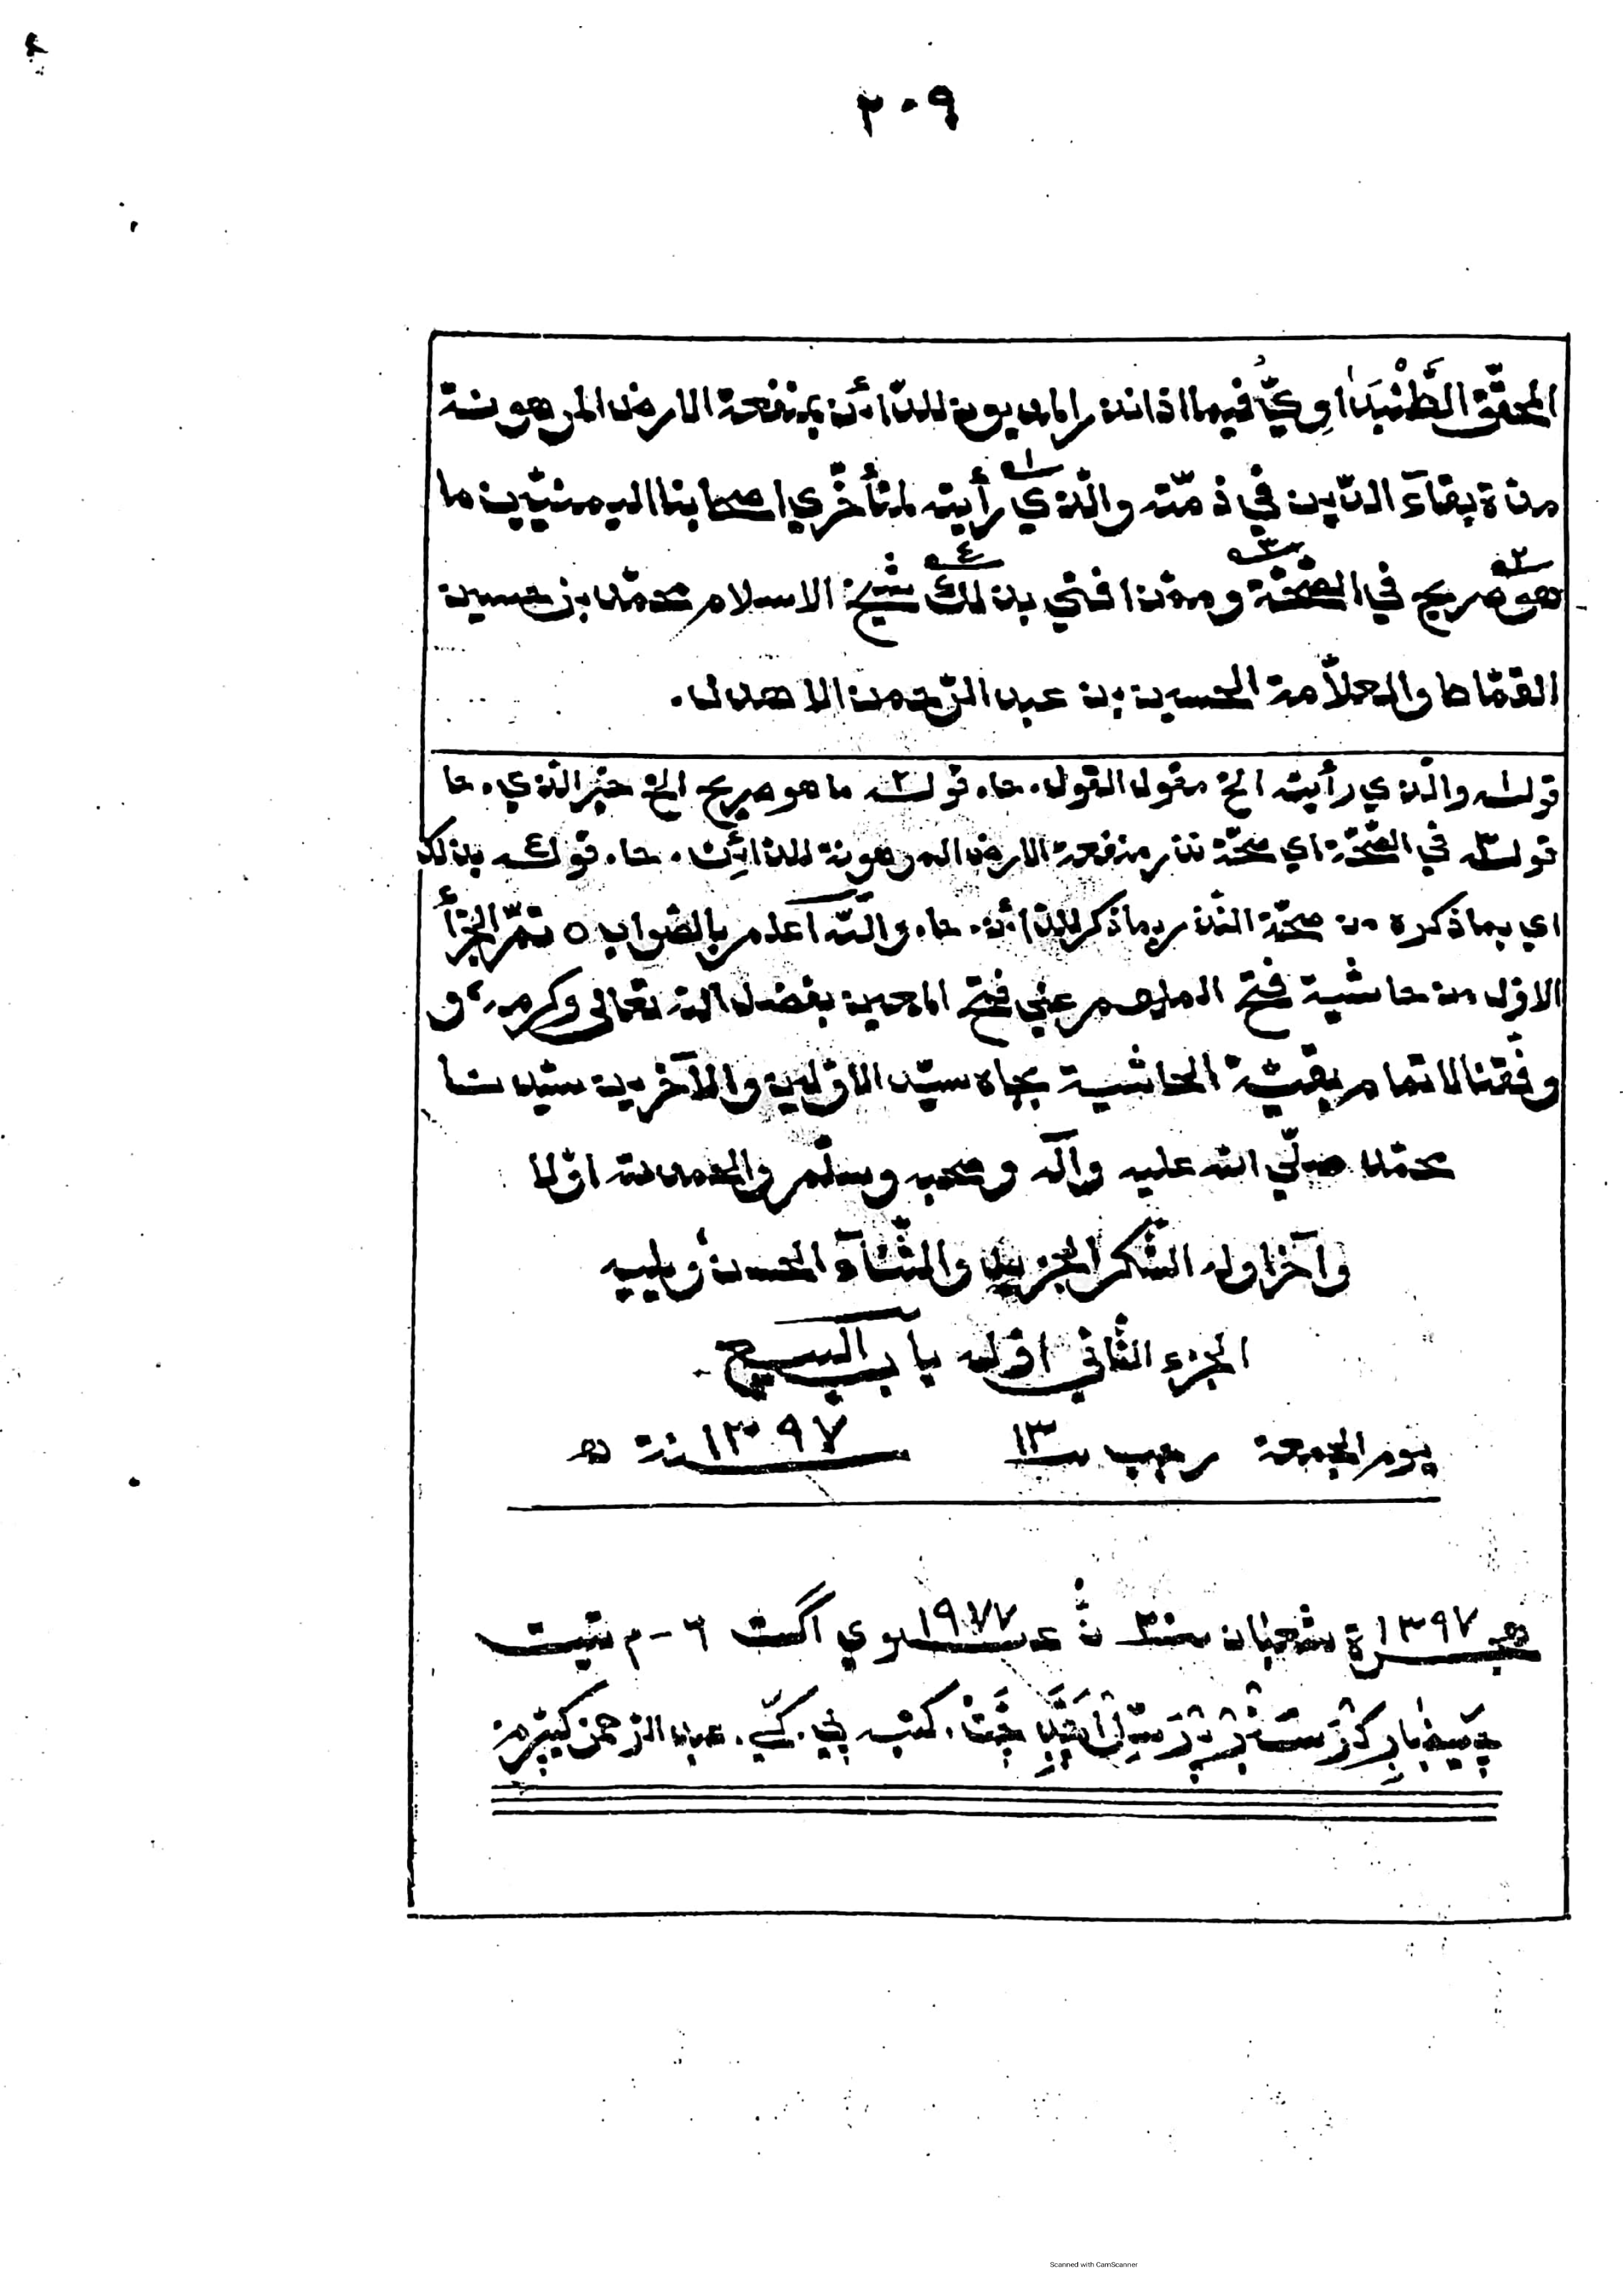 ٢٠٩
المحقّق الطَّنْبَدَاوِيُّ فيما اذا نذر المديون للدّائن بمنفعة الارض المرهونة
مدّة بقآء الدّين في ذمّته والّذي١ رأيته لمتأخّري اصحابنا اليمنيّين ما٢
هو صريح في الصّحّة٣ وممّن افتى بذلك٤ شيخ الاسلام محمّد بن حسين
القمّاط والعلاّمة الحسين بن عبد الرّحمن الاهدل.
قوله١ والّذي رأيته الخ مقول القول. حا. قوله٢ ما هو صريح الخ خبر الّذي. حا
قوله٣ في الصّحّة اي صحّة نذر منفعة الارض المرهونة للدّائن. حا. قوله٤ بذلك
اي بما ذكره من صحّة النّذر بما ذكر للدّائن. حا. والله اعلم بالصّواب ٥ تمّ الجزأ
الاوّل من حاشية فتح الملهم على فتح المعين بفضل الله تعالى وكرمه، و
وفّقنا لاتمام بقيّة الحاشية بجاه سيّد الاوّلين والآخرين سيّدنا
محمّد صلّى الله عليه وآله وصحبه وسلّم والحمد لله اوّلا
وآخرا وله الشّكر الجزيل والثّنآء الحسن ويليه
الجزء الثّاني اوّله باب البيع
يوم الجمعة رجب ١٣ ١٣٩٧ سنة هـ
هجرة ١٣٩٧ شعبان ١٩٧٧ وي اگست ٦-م تيت
كتبه پي. كي. عبد الرّحمن
Scanned with CamScanner